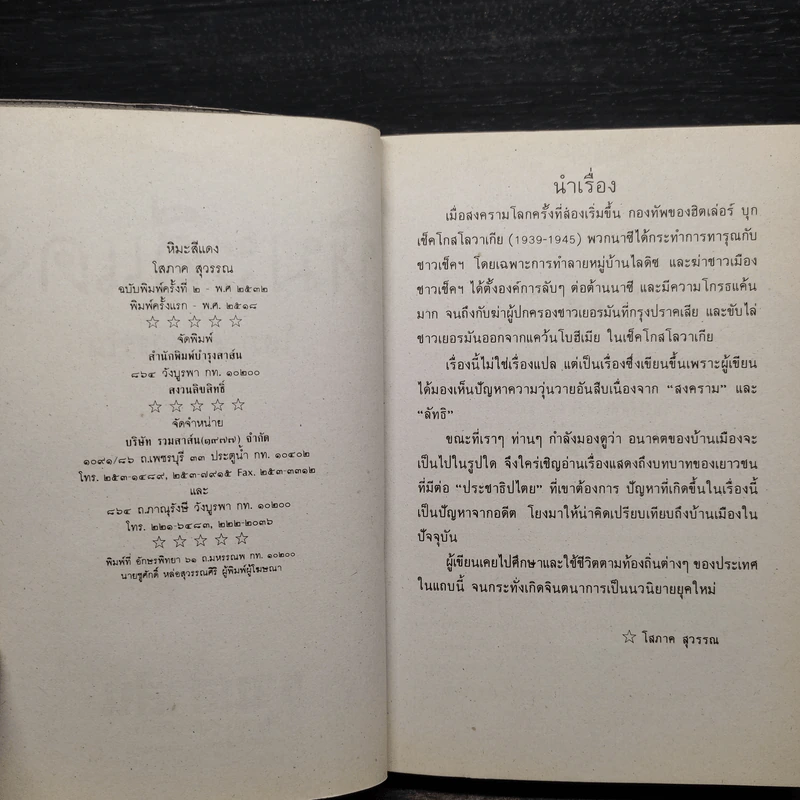 หิมะสีแดง
โสภาค สุวรรณ
ฉบับพิมพ์ครั้งที่ ๒ - พ.ศ ๒๕๓๒
พิมพ์ครั้งแรก - พ.ศ. ๒๕๑๘
☆ ☆ ☆ ☆ ☆
จัดพิมพ์
สำนักพิมพ์บำรุงสาส์น
๘๖๔ วังบูรพา กท. ๑๐๒๐๐
สงวนลิขสิทธิ์
☆ ☆ ☆ ☆ ☆
จัดจำหน่าย
บริษัท รวมสาส์น(๑๙๗๗) จำกัด
๑๐๙๑/๘๖ ถ.เพชรบุรี ๓๓ ประตูน้ำ กท. ๑๐๔๐๒
โทร. ๒๕๓-๑๔๘๙, ๒๕๓-๗๙๑๕ Fax. ๒๕๓-๓๓๑๒
และ
๘๖๔ ถ.ภาณุรังษี วังบูรพา กท. ๑๐๒๐๐
โทร. ๒๒๑-๖๔๘๓, ๒๒๒-๒๐๓๖
☆ ☆ ☆ ☆ ☆
พิมพ์ที่ อักษรพิทยา ๖๑ ถ.มหรรณพ กท. ๑๐๒๐๐
นายชูศักดิ์ หล่อสุวรรณศิริ ผู้พิมพ์ผู้โฆษณา
นำเรื่อง
เมื่อสงครามโลกครั้งที่สองเริ่มขึ้น กองทัพของฮิตเล่อร์ บุก
เช็คโกสโลวาเกีย (1939-1945) พวกนาซีได้กระทำการทารุณกับ
ชาวเช็คฯ โดยเฉพาะการทำลายหมู่บ้านไลดิซ และฆ่าชาวเมือง
ชาวเช็คฯ ได้ตั้งองค์การลับๆ ต่อต้านนาซี และมีความโกรธแค้น
มาก จนถึงกับฆ่าผู้ปกครองชาวเยอรมันที่กรุงปราคเสีย และขับไล่
ชาวเยอรมันออกจากแคว้นโบฮีเมีย ในเช็คโกสโลวาเกีย
เรื่องนี้ไม่ใช่เรื่องแปล แต่เป็นเรื่องซึ่งเขียนขึ้นเพราะผู้เขียน
ได้มองเห็นปัญหาความวุ่นวายอันสืบเนื่องจาก “สงคราม” และ
“ลัทธิ”
ขณะที่เราๆ ท่านๆ กำลังมองดูว่า อนาคตของบ้านเมืองจะ
เป็นไปในรูปใด จึงใคร่เชิญอ่านเรื่องแสดงถึงบทบาทของเยาวชน
ที่มีต่อ “ประชาธิปไตย” ที่เขาต้องการ ปัญหาที่เกิดขึ้นในเรื่องนี้
เป็นปัญหาจากอดีต โยงมาให้น่าคิดเปรียบเทียบถึงบ้านเมืองใน
ปัจจุบัน
ผู้เขียนเคยไปศึกษาและใช้ชีวิตตามท้องถิ่นต่างๆ ของประเทศ
ในแถบนี้ จนกระทั่งเกิดจินตนาการเป็นนวนิยายยุคใหม่
☆ โสภาค สุวรรณ